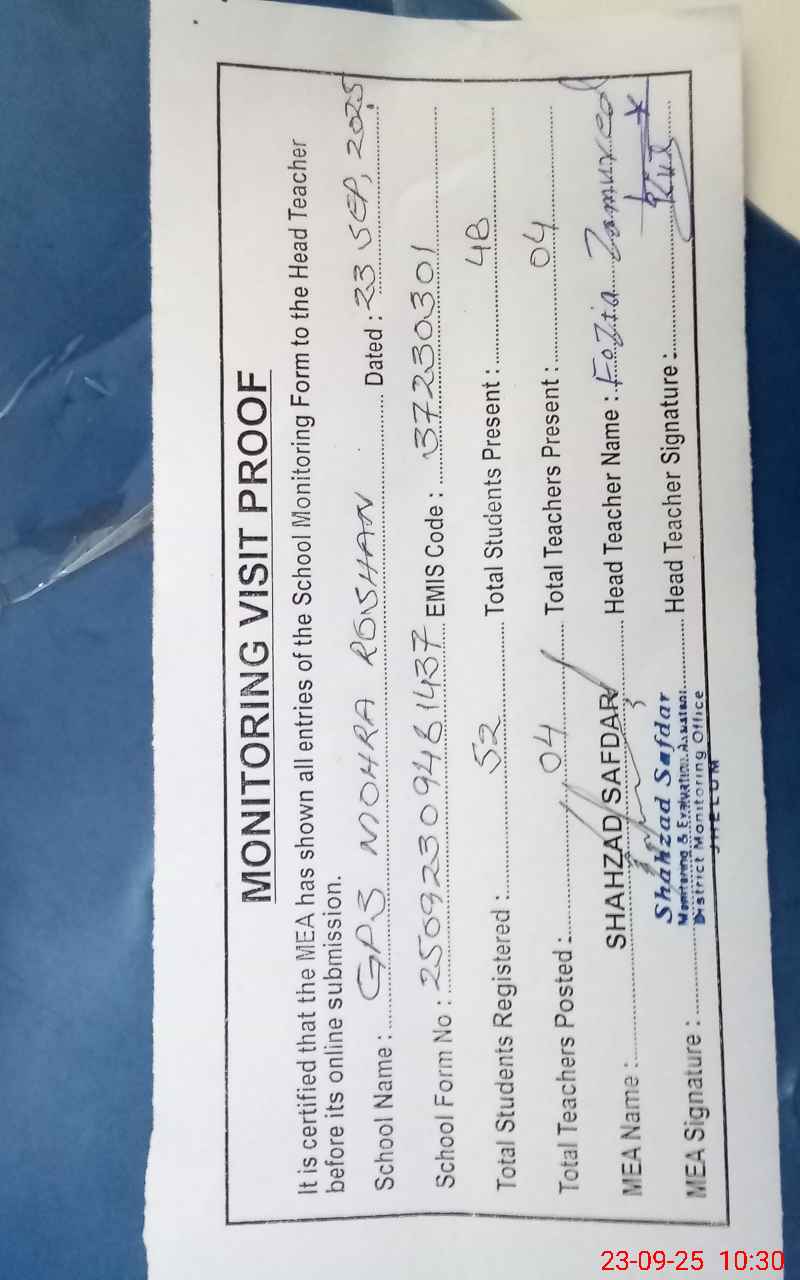 MONITORING VISIT PROOF
It is certified that the MEA has shown all entries of the School Monitoring Form to the Head Teacher
before its online submission.
School Name : GPS MOHRA ROSHAN Dated : 23 SEP, 2025
School Form No : 25092309461437 EMIS Code : 37230301
Total Students Registered : 52 Total Students Present : 48
Total Teachers Posted : 04 Total Teachers Present : 04
MEA Name : SHAHZAD SAFDAR Head Teacher Name : Fozia Zamured
MEA Signature : Head Teacher Signature :
Shahzad Safdar
Monitoring & Evaluation Assistant
District Monitoring Office
JHELUM
23-09-25 10:30